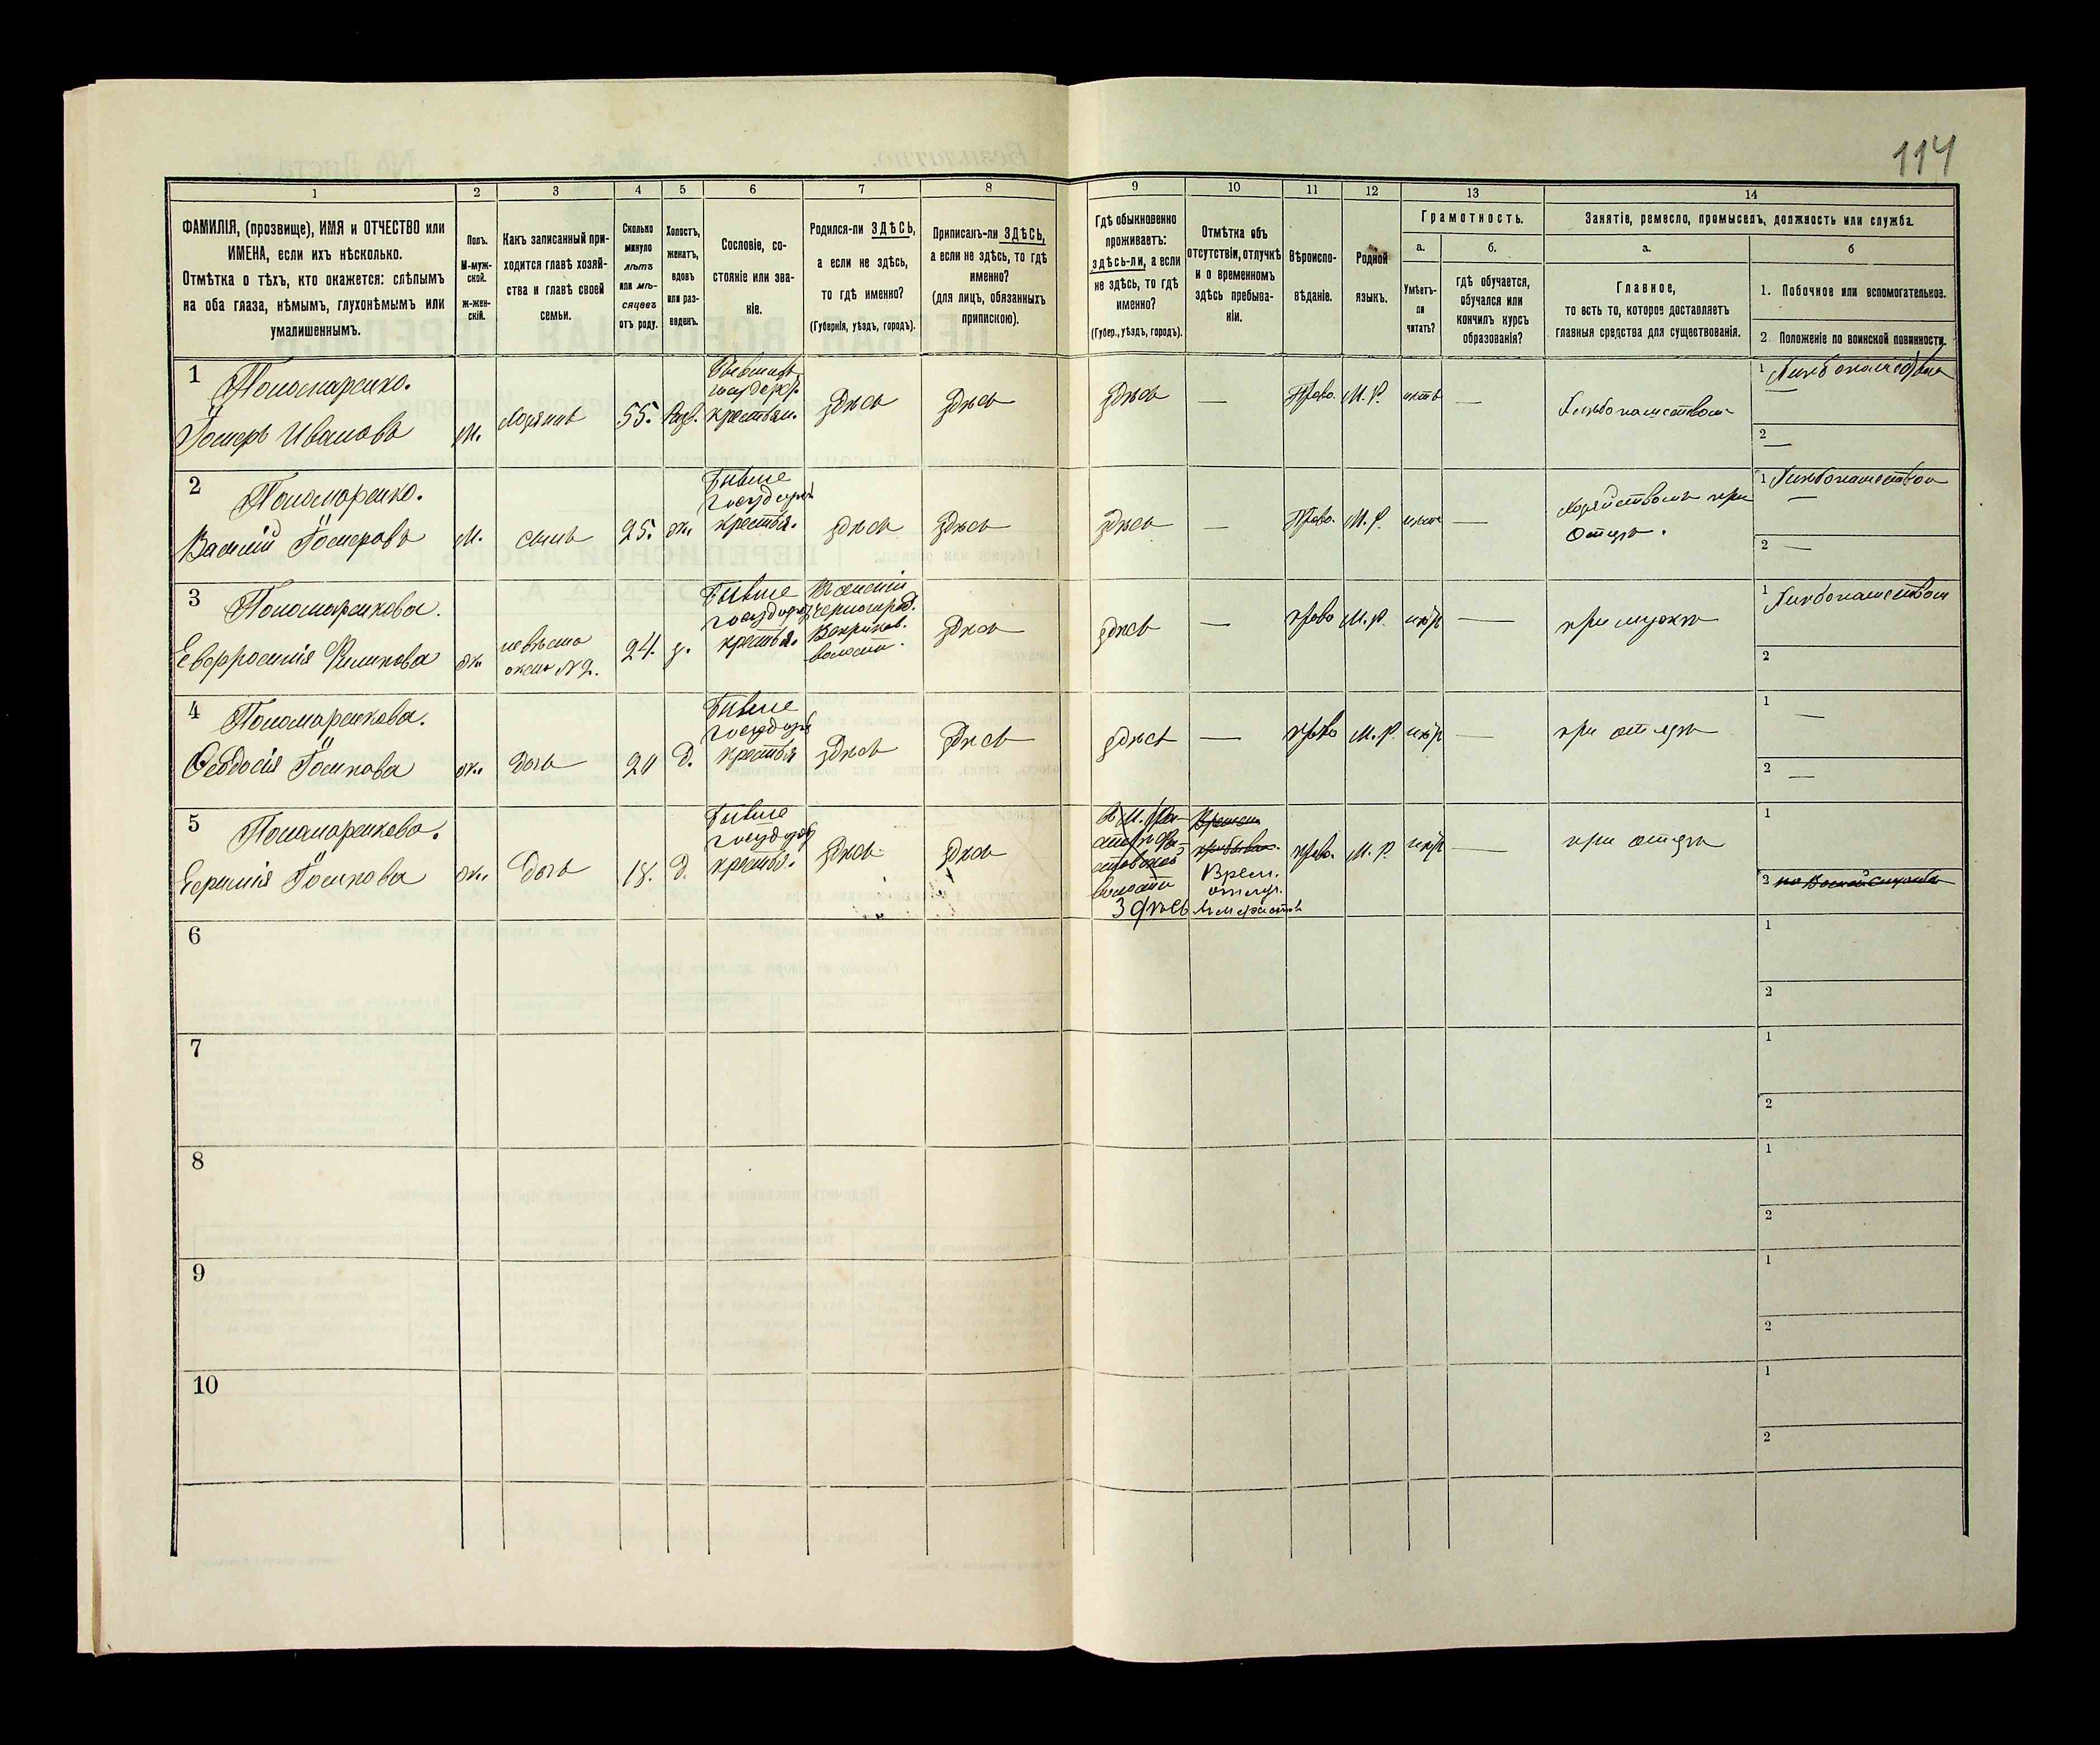 114
1 2 3 4 5 6 7 8 9 10 11 12 13 14
ФАМИЛІЯ, (прозвище), ИМЯ и ОТЧЕСТВО или
ИМЕНА, если ихъ нѣсколько.
Отмѣтка о тѣхъ, кто окажется: слѣпымъ
на оба глаза, нѣмымъ, глухонѣмымъ или
умалишеннымъ.
Полъ.
М-муж-
ской.
ж-жен-
скій.
Какъ записанный при-
ходится главѣ хозяй-
ства и главѣ своей
семьи.
Сколько
минуло
лѣтъ
или мѣ-
сяцевъ
отъ роду.
Холостъ,
женатъ,
вдовъ
или раз-
веденъ.
Сословіе, со-
стояніе или зва-
ніе.
Родился-ли ЗДѢСЬ,
а если не здѣсь,
то гдѣ именно?
(Губернія, уѣздъ, городъ).
Приписанъ-ли ЗДѢСЬ,
а если не здѣсь, то гдѣ
именно?
(для лицъ, обязанныхъ
припискою).
Гдѣ обыкновенно
проживаетъ:
здѣсь-ли, а если
не здѣсь, то гдѣ
именно?
(Губер., уѣздъ, городъ).
Отмѣтка объ
отсутствіи, отлучкѣ
и о временномъ
здѣсь пребыва-
ніи.
Вѣроиспо-
вѣданіе.
Родной
языкъ.
Грамотность.
а. б.
Умѣетъ-
ли
читать?
гдѣ обучается,
обучался или
кончилъ курсъ
образованія?
Занятіе, ремесло, промыселъ, должность или служба.
а. б
Главное,
то есть то, которое доставляетъ
главныя средства для существованія.
1. Побочное или вспомогательное.
2 Положеніе по воинской повинности.
1 Пономаренко.
Иванова М. хозяинъ 55. крестьян. здѣсь здѣсь здѣсь — Право. М. Р. нѣтъ — Хлѣбопашествомъ
1 —
2 —
2 Пономаренко.
Василій М. сынъ 25. ж. Бывше
крестья. здѣсь здѣсь здѣсь — Право. М. Р. — хозяйствомъ при
отцѣ.
1 Хлѣбопашеством —
2 —
3 Пономаренкова.
Евфросинія ж. невѣста
жена №2. 24. з. Бывше
крестья.
волости. здѣсь здѣсь — право М. Р. — при мужѣ
1 Хлѣбопашеством
2
4 Пономаренкова.
Ѳеодосія ж. дочь 20 д. Бывше
крестья здѣсь здѣсь здѣсь — право М. Р — при отцѣ
1 —
2 —
5 Пономаренкова.
ж. дочь 18. д. Бывше
крестья. здѣсь здѣсь
волости
Здѣсь
Врем.
отлуч.
право. М. Р. — при отцѣ
1
2
6 1
2
7 1
2
8 1
2
9 1
2
10 1
2